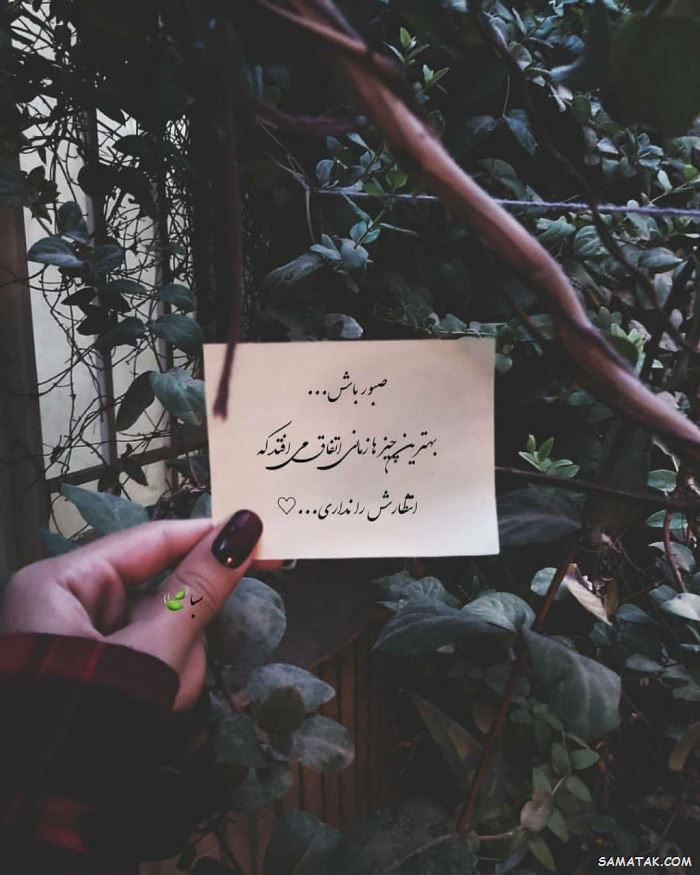 صبور باش...
بهترین چیزها زمانی اتفاق می افتد که
انتظارش را نداری...♡
سبا
SAMATAK.COM